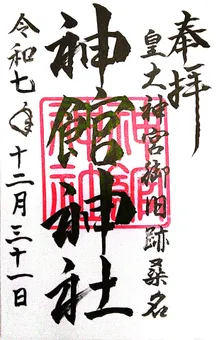 奉拝
皇大神宮御旧跡桑名
神館神社
神館神社
令和七年十二月三十一日